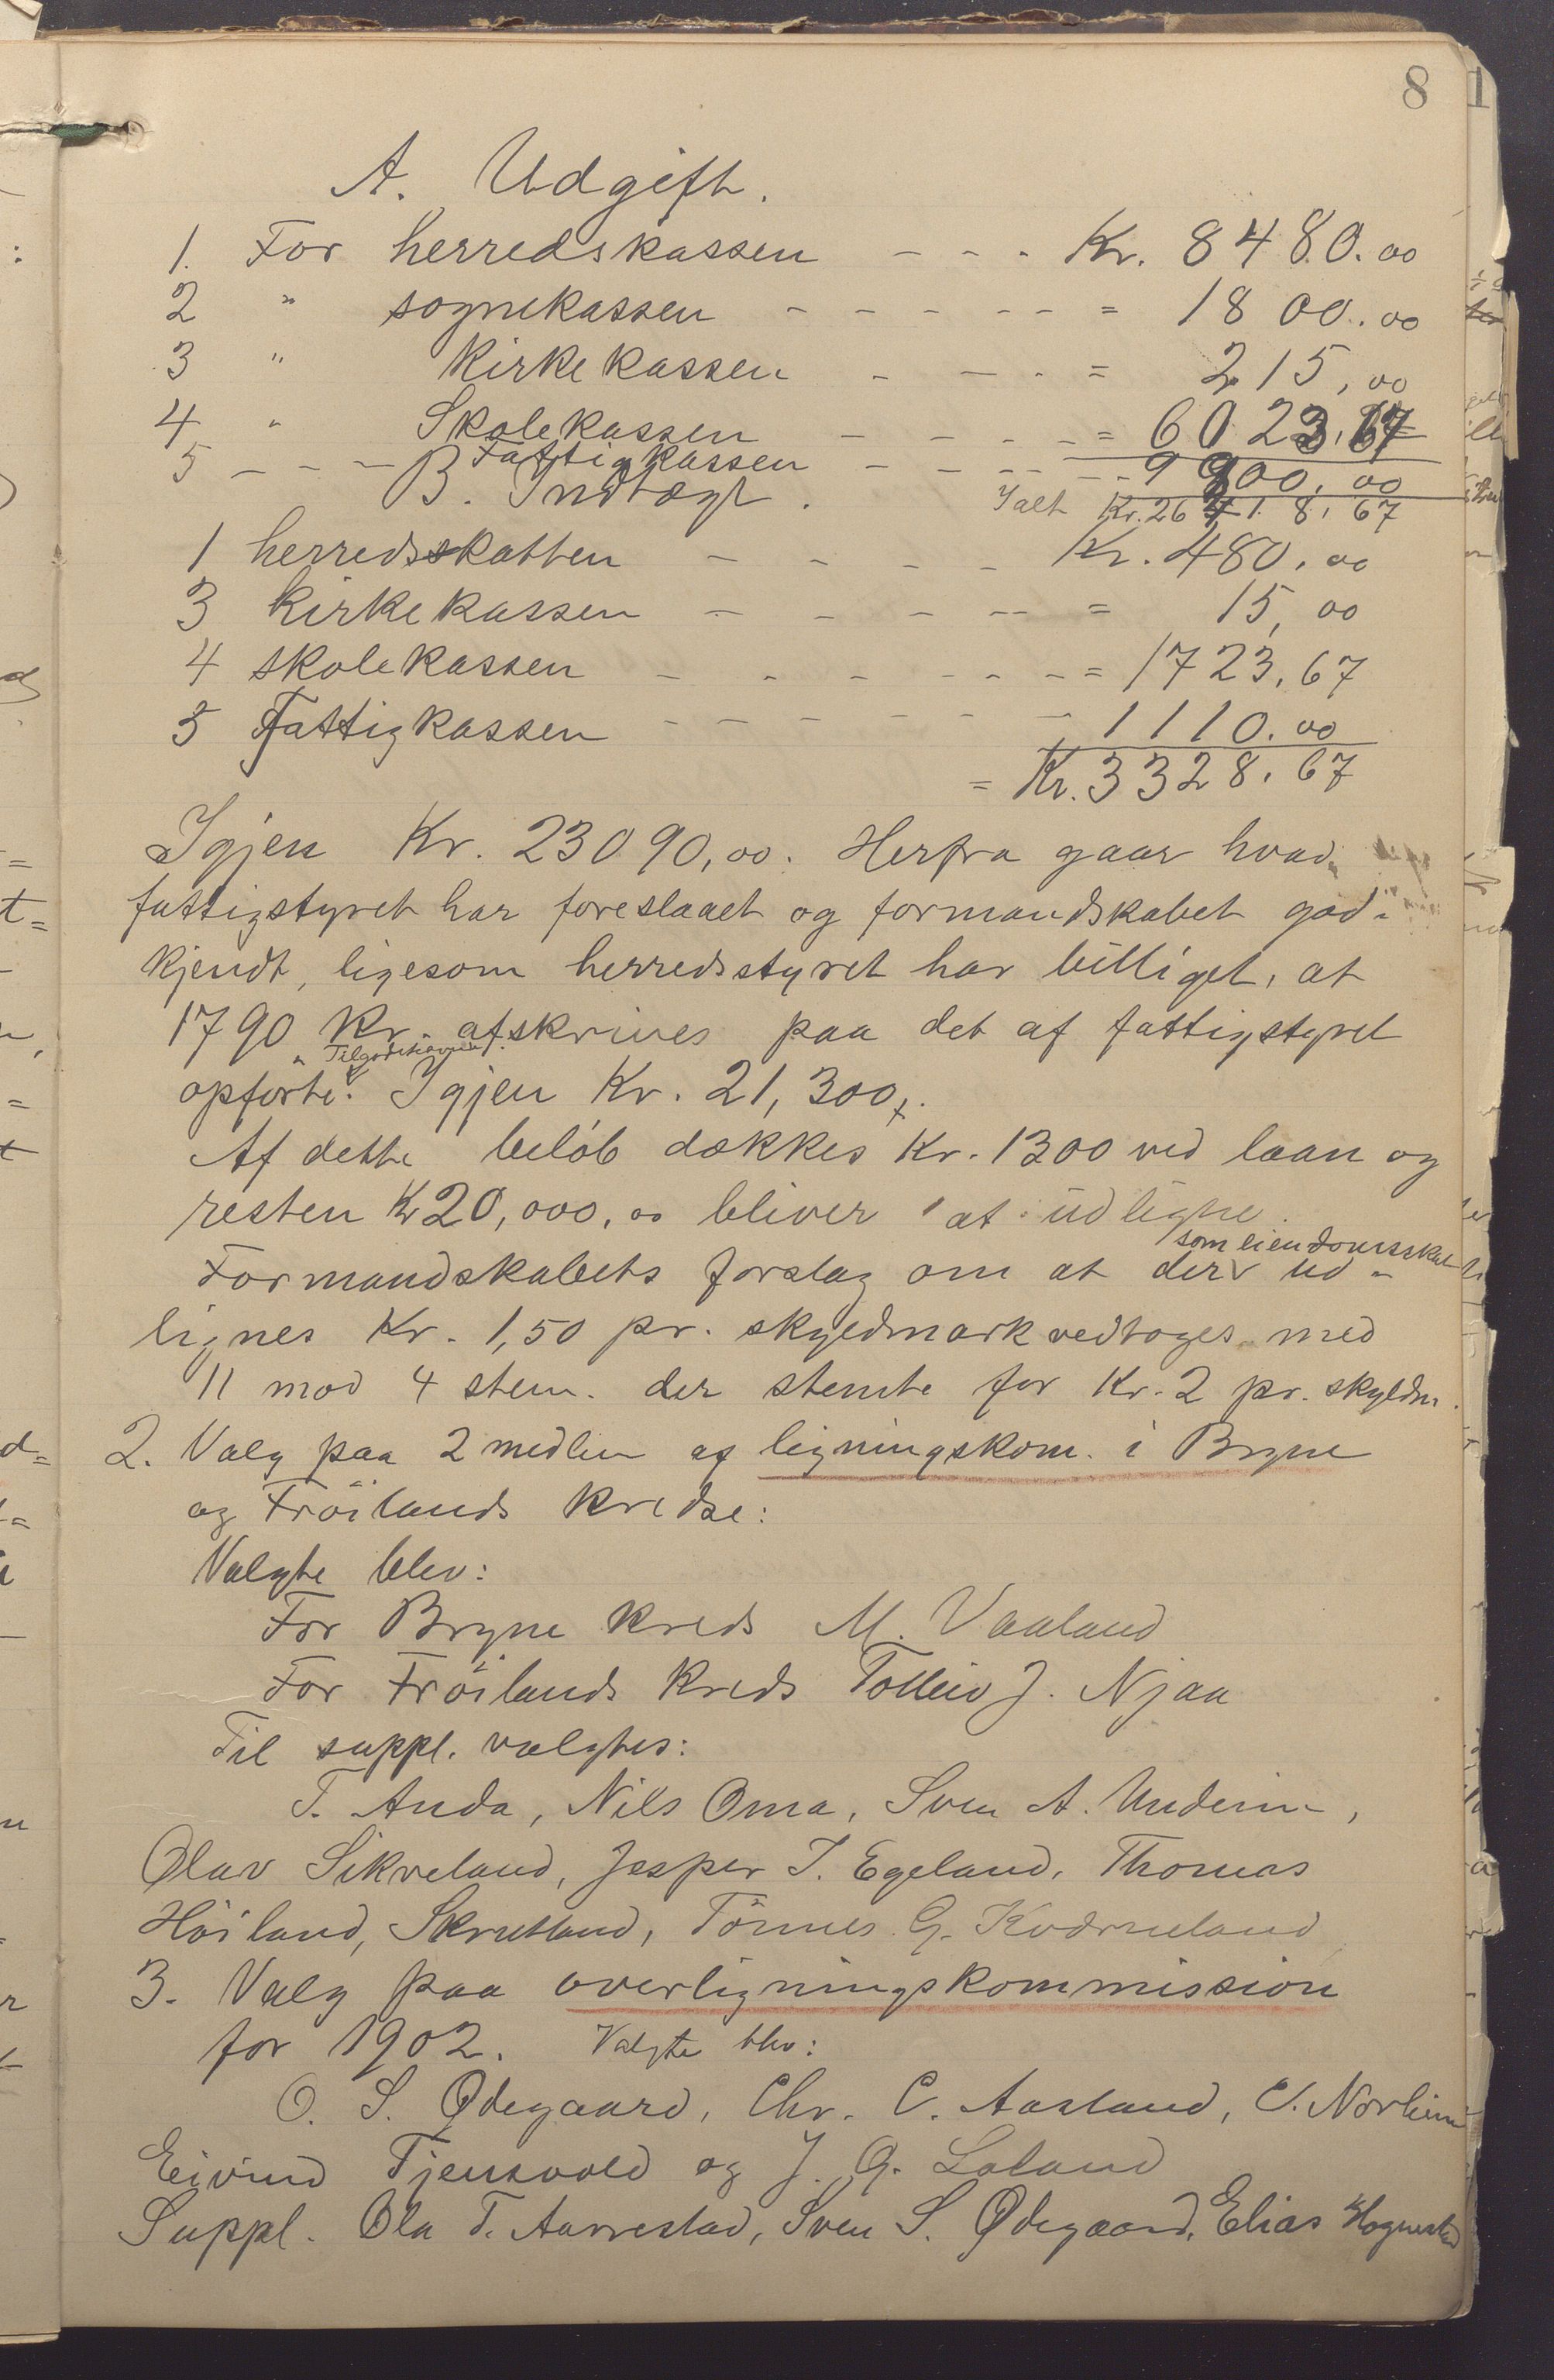 8
A. Udgift.
1. For herredskassen - - - Kr. 8480.00
2 " sognekassen - - - - - = 1800.00
3 " Kirkekassen - - - = 215,00
4 " Skolekassen - - - - = 6023,67
5 - - - Fattigkassen - - - - 9900,00
B. Indtægt. Ialt Kr. 26418,67
1 herredsskatten - - - Kr. 480.00
3 Kirkekassen - - - - = 15,00
4 skolekassen - - - - - - = 1723,67
5 Fattigkassen - - - - - - 1110.00
= Kr. 3328,67
Igjen Kr. 23090,00. Herfra gaar hvad
fattigstyret har foreslaaet og formandskabet god-
kjendt, ligesom herredsstyret har billiget, at
1790 Kr. afskrives paa det af fattigstyret
opførte "Tilgodehavende". Igjen Kr. 21,300,
Af dette beløb dækkes Kr. 1300 ved laan og
resten Kr 20,000,00 bliver at udligne.
Formandskabets forslag om at der som eiendomsskat ud-
lignes Kr. 1,50 pr. skyldmark vedtoges med
11 mod 4 stem. der stemte for Kr. 2 pr. skyldm.
2. Valg paa 2 medlem af ligningskom. i Bryne
og Fröilands kredse:
Valgte blev:
For Bryne Kreds M. Vaaland
For Fröilands Kreds Tolleiv J. Njaa
Til suppl. valgtes:
T. Anda, Nils Oma, Sven A. Undeim,
Olav Sikveland, Jesper T. Egeland, Thomas
Höiland, Skrudland, Tönnes G. Kværneland
3. Valg paa overligningskommission
for 1902. Valgte blev:
O. S. Ødegaard, Chr. C. Aasland, C. Norheim
Eivind Tjensvold og J. G. Laland
Suppl. Ola T. Aarrestad, Sven S. Ødegaard, Elias Hognestad